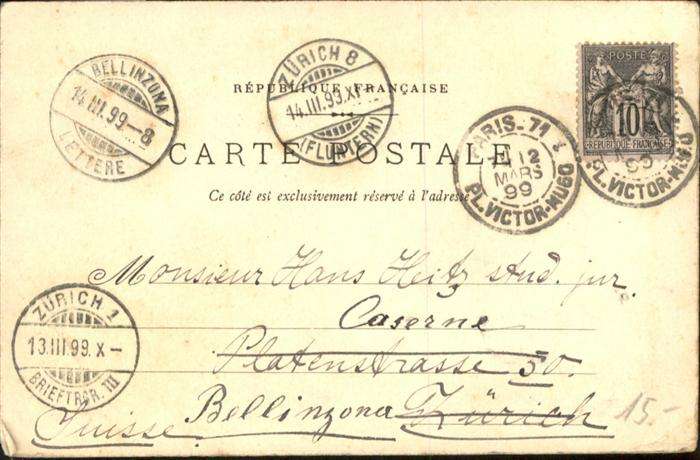 POSTE
10
REPUBLIQUE FRANÇAISE
RÉPUBLIQUE FRANÇAISE
CARTE POSTALE
Ce côté est exclusivement réservé à l'adresse
BELLINZONA
14.III.99-8
LETTERE
ZÜRICH 8
14.III.99.XI
(FLUNTERN)
PARIS-71
12
MARS
99
PL.VICTOR-HUGO
99
PL.VICTOR-HUGO
Monsieur Hans Heitz stud. jur.
Caserne
Platenstrasse 50.
Bellinzona Zürich
Suisse
15.-
ZÜRICH 1
13.III.99.X-
BRIEFTRÄG. III